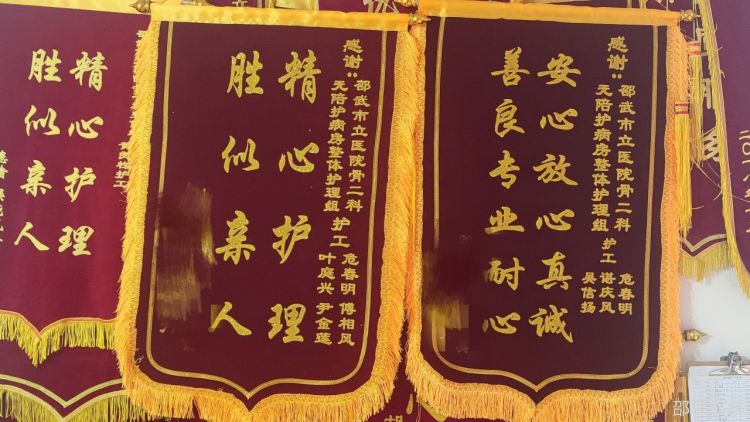 精心护理
胜似亲人
护工
感谢:邵武市立医院骨二科
无陪护病房整体护理组
护工
危春明 傅相风
叶庭兴 尹金莲
精心护理
胜似亲人
感谢:邵武市立医院骨二科
无陪护病房整体护理组
护工
危春明
谌庆风
吴信扬
安心放心真诚
善良专业耐心
邵